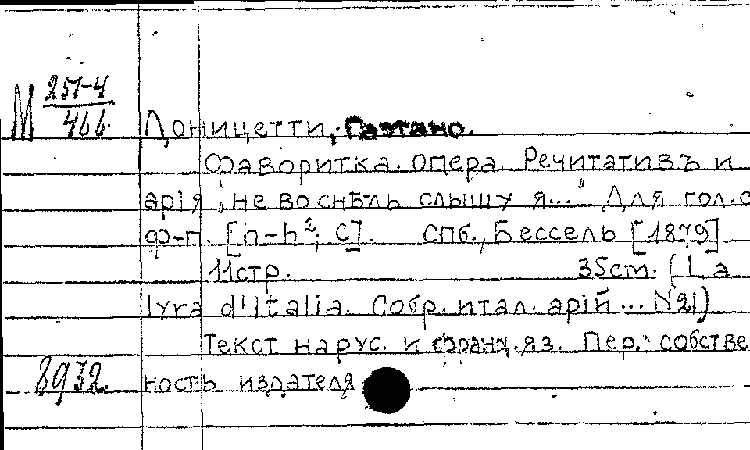 М 251-4
466.
Доницетти, Гаэтано.
Фаворитка. Опера. Речитативъ и
арія „не во снѣль слышу я..." Для гол. с
ф-п. [h-h²; C]. СПб., Бессель [1879]
11стр. 35см. (La
lyra d'Italia. Собр. итал. арій... №21)
Текст на рус. и франц. яз. Пер.: собстве
8932. ность издателя